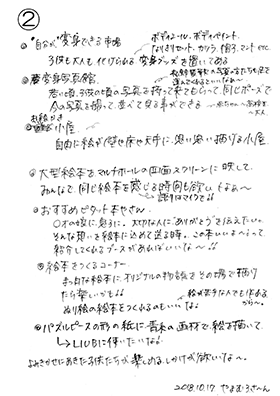 ②
。"自分が"変身できる市場
ボディシール、ボディペイント
なりきりセット、カツラ、帽子、マント etc
子供も大人も付けられる変身グッズを置いてある
。変身写真館
思い出、子供の頃の写真を持って来てもらって、同じポーズで
今の写真を撮って、並べて見る事ができる
お絵かき
。小屋
自由に絵が壁や床や天井に、思い思い描ける小屋
。大型絵本をマルチホールの画面スクリーンに映して、
みんなで同じ絵本を感じる時間も欲しいよね〜
。おすすめピタット本やさん
〇才の娘に、息子に、大切な人に「ありがとう」を伝えたい。
そんな想いを絵本に込めて送る時。この本いいよ〜って
紹介してくれるブースがあればいいな〜
。絵本をつくるコーナー
まっ白な絵本に、オリジナルの物語をその場で描け
たら楽しいかも
絵が苦手な人でも作れる
から〜。
ぬり絵の絵本をつくれるのもいいな
。パズルピースの形の紙に青系の画材で絵を描いて、
→LIVEに使いたいな
よみきかせにあきた子供たちが楽しめるしかけが欲いな〜。
2018.10.17 やまむろさ〜ん